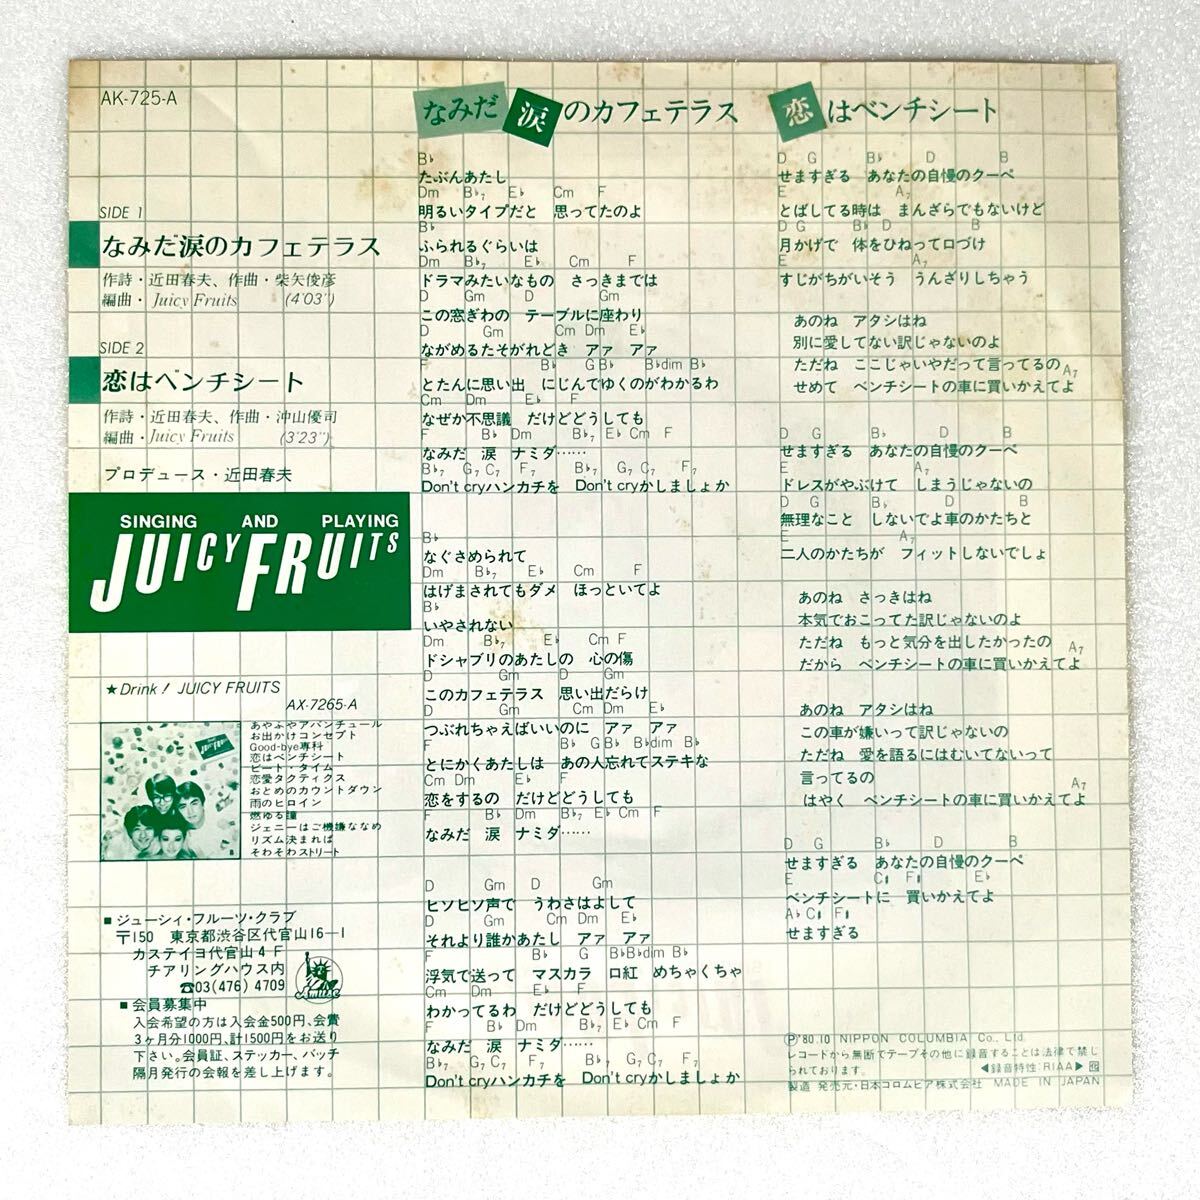 AK-725-A
SIDE 1
なみだ涙のカフェテラス
作詩・近田春夫、作曲・柴矢俊彦
編曲・Juicy Fruits (4'03")
SIDE 2
恋はベンチシート
作詩・近田春夫、作曲・沖山優司
編曲・Juicy Fruits (3'23")
プロデュース・近田春夫
SINGING AND PLAYING
JUICY FRUITS
★Drink! JUICY FRUITS
AX-7265-A
JUICY FRUITS
あやふやアバンチュール
お出かけコンセプト
Good-bye専科
恋はベンチシート
ビート・タイム
恋愛タクティクス
おとめのカウントダウン
雨のヒロイン
燃ゆる瞳
ジェニーはご機嫌ななめ
リズム決まれば
そわそわストリート
■ジューシィ・フルーツ・クラブ
〒150 東京都渋谷区代官山16-1
カステイヨ代官山4F
チアリングハウス内
☎03(476)4709
Amuse
■会員募集中
入会希望の方は入会金500円、会費
3ヶ月分1000円、計1500円をお送り
下さい。会員証、ステッカー、バッチ
隔月発行の会報を差し上げます。
なみだ涙のカフェテラス
B♭
たぶんあたし
Dm B♭7 E♭ Cm F
明るいタイプだと 思ってたのよ
B♭
ふられるぐらいは
Dm B♭7 E♭ Cm F
ドラマみたいなもの さっきまでは
D Gm D Gm
この窓ぎわの テーブルに座わり
D Gm Cm Dm E♭
ながめるたそがれどき アァ アァ
F B♭ G B♭ B♭dim B♭
とたんに思い出 にじんでゆくのがわかるわ
Cm Dm E♭ F
なぜか不思議 だけどどうしても
F B♭ Dm B♭7 E♭ Cm F
なみだ 涙 ナミダ……
B♭7 G7 C7 F7 B♭7 G7 C7 F7
Don't cryハンカチを Don't cryかしましょか
B♭
なぐさめられて
Dm B♭7 E♭ Cm F
はげまされてもダメ ほっといてよ
B♭
いやされない
Dm B♭7 E♭ Cm F
ドシャブリのあたしの 心の傷
D Gm D Gm
このカフェテラス 思い出だらけ
D Gm Cm Dm E♭
つぶれちゃえばいいのに アァ アァ
F B♭ G B♭ B♭dim B♭
とにかくあたしは あの人忘れてステキな
Cm Dm E♭ F
恋をするの だけどどうしても
F B♭ Dm B♭7 E♭ Cm F
なみだ 涙 ナミダ……
D Gm D Gm
ヒソヒソ声で うわさはよして
D Gm Cm Dm E♭
それより誰かあたし アァ アァ
F B♭ G B♭ B♭dim B♭
浮気で送って マスカラ 口紅 めちゃくちゃ
Cm Dm E♭ F
わかってるわ だけどどうしても
F B♭ Dm B♭7 E♭ Cm F
なみだ 涙 ナミダ……
B♭7 G7 C7 F7 B♭7 G7 C7 F7
Don't cryハンカチを Don't cryかしましょか
恋はベンチシート
D G B♭ D B
せますぎる あなたの自慢のクーペ
E A7
とばしてる時は まんざらでもないけど
D G B♭ D B
月かげで 体をひねって口づけ
E A7
すじがちがいそう うんざりしちゃう
あのね アタシはね
別に愛してない訳じゃないのよ
ただね ここじゃいやだって言ってるの
A7
せめて ベンチシートの車に買いかえてよ
D G B♭ D B
せますぎる あなたの自慢のクーペ
E A7
ドレスがやぶけて しまうじゃないの
D G B♭ D B
無理なこと しないでよ車のかたちと
E A7
二人のかたちが フィットしないでしょ
あのね さっきはね
本気でおこってた訳じゃないのよ
ただね もっと気分を出したかったの
A7
だから ベンチシートの車に買いかえてよ
あのね アタシはね
この車が嫌いって訳じゃないの
ただね 愛を語るにはむいてないって
言ってるの
A7
はやく ベンチシートの車に買いかえてよ
D G B♭ D B
せますぎる あなたの自慢のクーペ
E C♯ F♯ E♭
ベンチシートに 買いかえてよ
A♭ C♯ F♯
せますぎる
Ⓟ'80.10 NIPPON COLUMBIA Co., Ltd.
レコードから無断でテープその他に録音することは法律で禁じ
られております。 ◀録音特性:RIAA▶
製造 発売元・日本コロムビア株式会社 MADE IN JAPAN